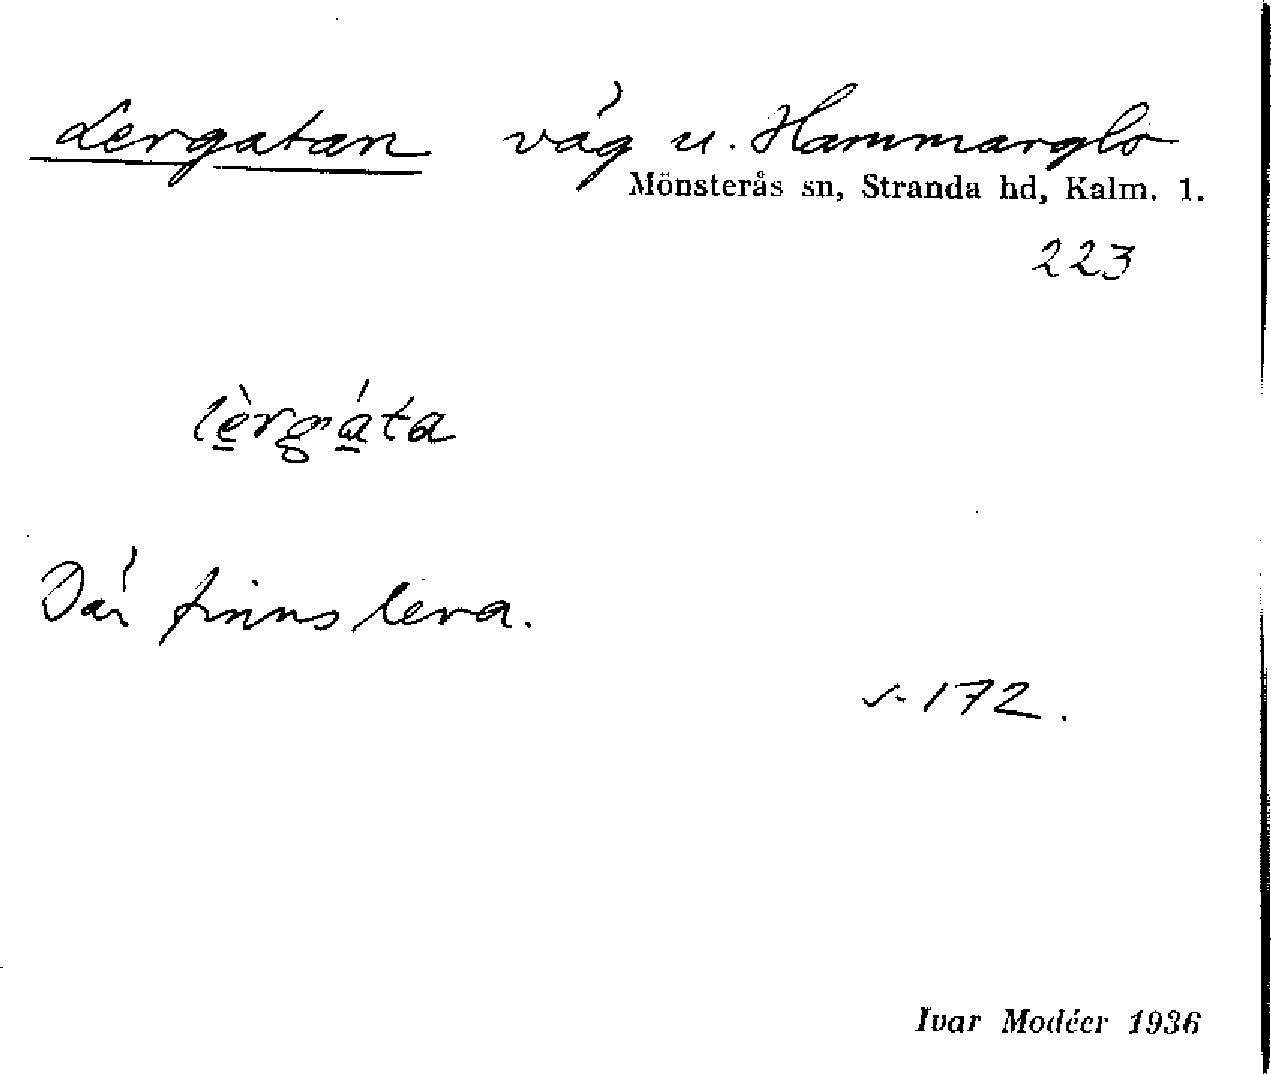 Lergatan väg u. Hammarglo
Mönsterås sn, Stranda hd, Kalm. l.
223
lèrgáta
Där finns lera.
s. 172.
Ivar Modéer 1936